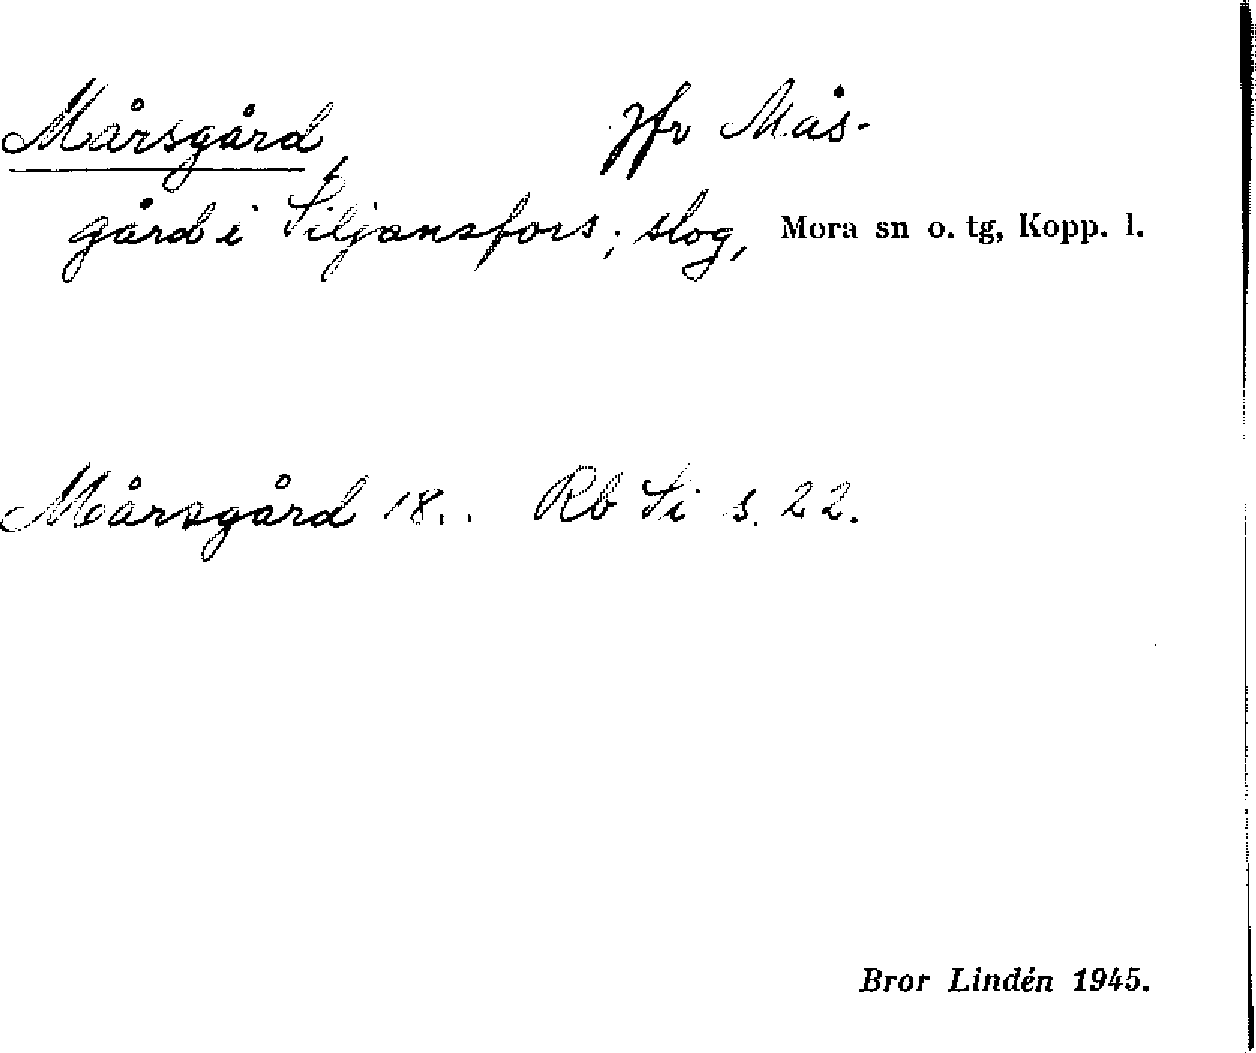 Mårsgård, Jfr Mås-
gård i Siljansfors; slog, Mora sn o. tg, Kopp. l.
Mårsgård 18.. Rb Si s. 22.
Bror Lindén 1945.